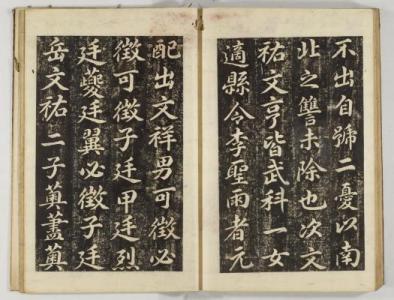 不出自號二憂以南
北之讐未除也次文
祐文亨皆武科一女
適縣令李聖雨者元
配出文祥男可徵必
徵可徵子廷甲廷烈
廷夔廷翼必徵子廷
岳文祐二子䔥藎䔥